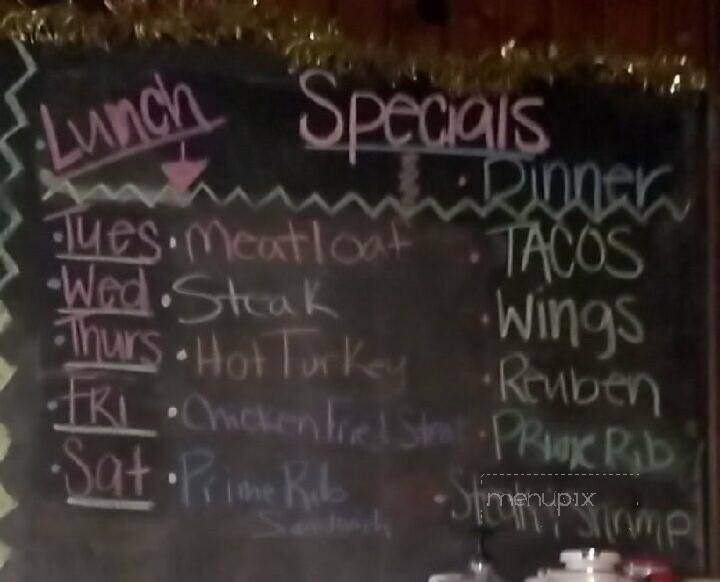 Lunch Specials
Dinner
Tues • Meatloaf • TACOS
Wed • Steak • Wings
Thurs • Hot Turkey • Reuben
FRI • Chicken Fried Steak • PRime Rib
Sat • Prime Rib Sandwich • Steak & Shrimp
menupix